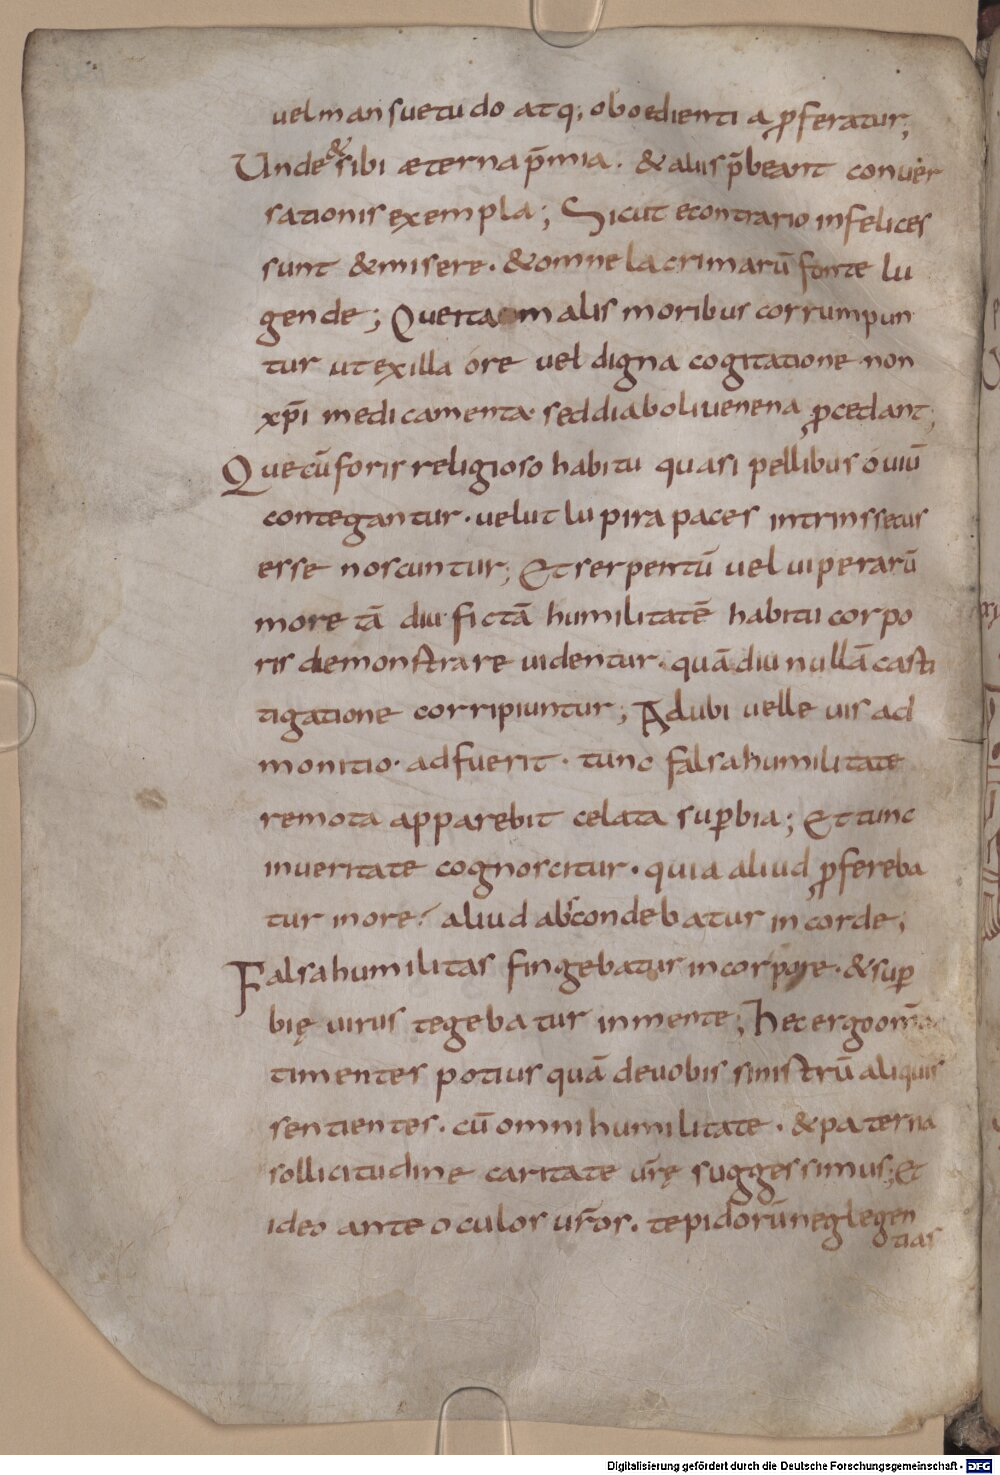 uel mansuetudo atq; oboedientia ꝓferatur;
Unde & sibi æterna p̄mia. & aliis p̄beant conuer
sationis exempla; Sicut econtrario infelices
sunt & misere. & omne lacrimarū fonte lu
gende; Que ita malis moribus corrumpun
tur ut ex illa óre uel digna cogitatione non
xp̄i medicamenta. sed diaboli uenena ꝓcedant;
Que cū foris religioso habitu quasi pellibus óuiū
contegantur. uelut lupi rapaces intrinssecus
esse noscuntur; Et serpentū uel uiperarū
more tā diu fictā humilitatē habitu corpo
ris demonstrare uidentur. quā diu nullā casti
tigatione corripiuntur; Ad ubi uelle uis ad
monitio. adfuerit. tunc falsa humilitate
remota apparebit celata suꝑbia; Et tunc
in ueritate cognoscitur. quia aliud ꝓfereba
tur in ore. aliud abscondebatur in corde;
Falsa humilitas fingebatur in corpore. & suꝑ
bię uirus tegebatur in mente; Hec ergo om̄a
timentes potius quā de uobis sinistrū aliquis
sentientes. cū omni humilitate. & paterna
sollicitudine caritate ur̄ę suggessimus; Et
ideo ante oculos ur̄os. tepidorū neglegen
tias
Digitalisierung gefördert durch die Deutsche Forschungsgemeinschaft - DFG